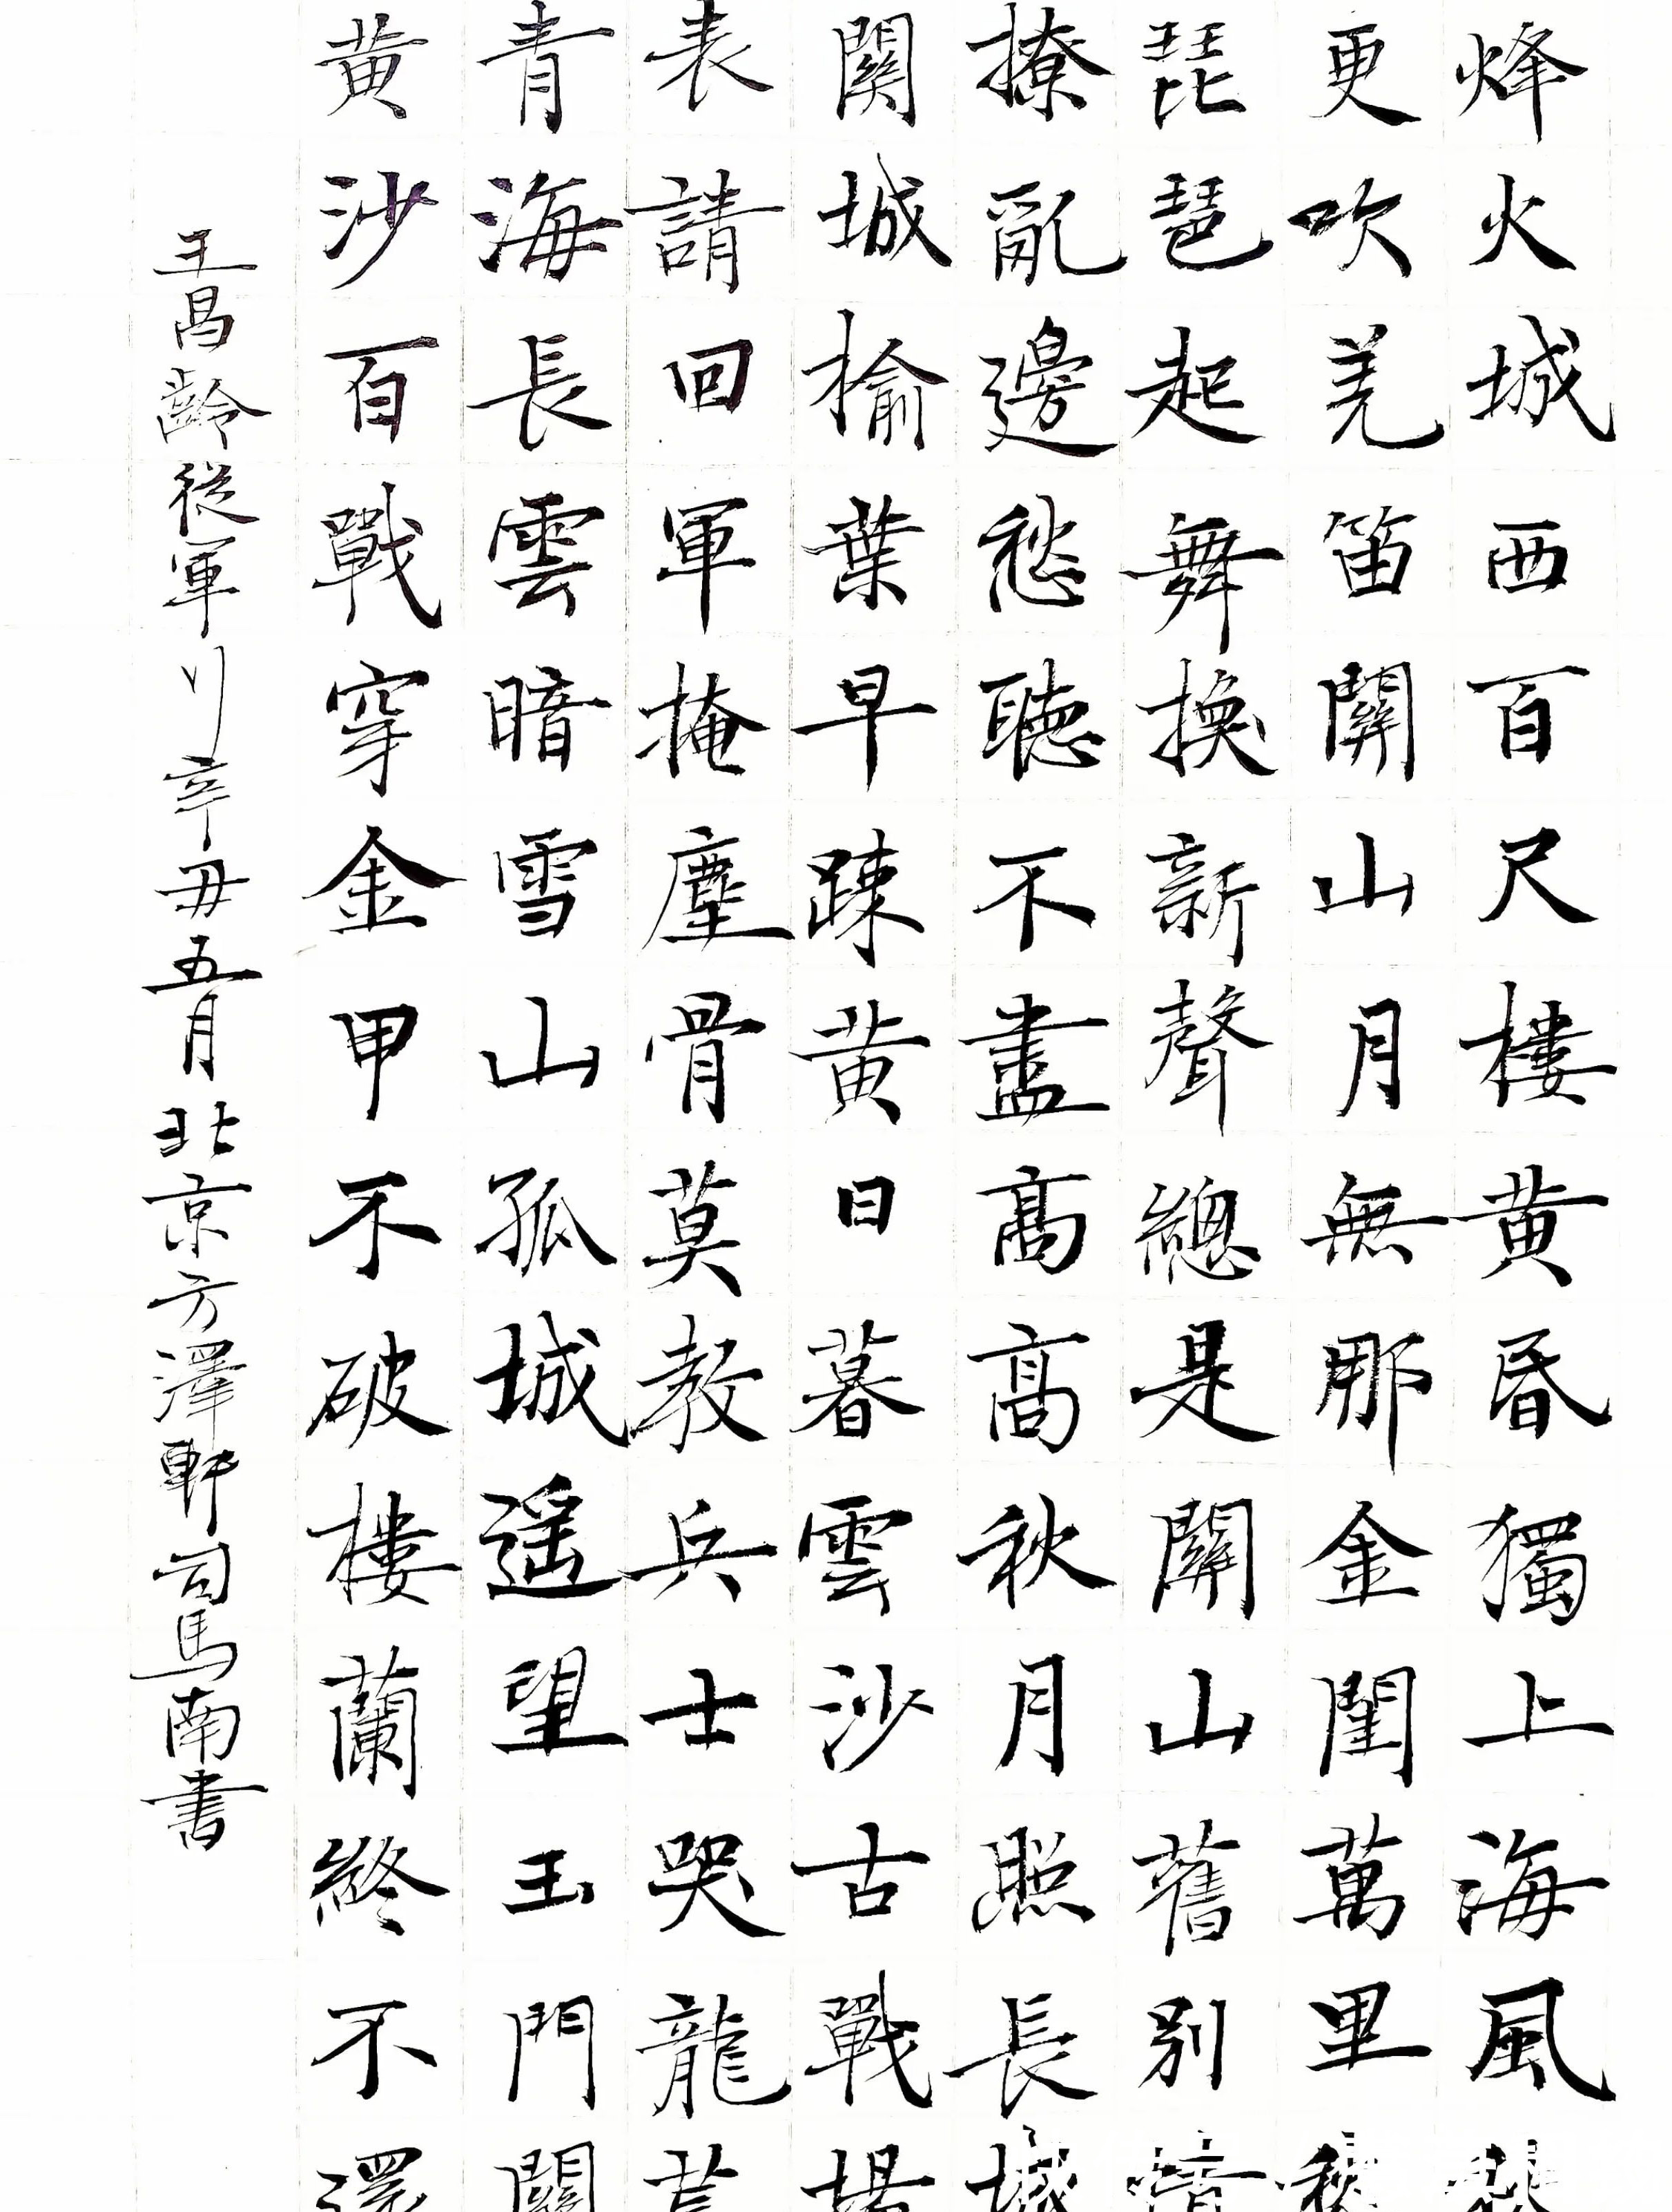 烽火城西百尺樓黄昏獨上海風秋
更吹羌笛關山月無那金閨萬里愁
琵琶起舞換新聲總是關山舊別情
撩亂邊愁聽不盡高高秋月照長城
關城榆葉早踈黄日暮雲沙古戰場
表請回軍掩塵骨莫教兵士哭龍荒
青海長雲暗雪山孤城遥望玉門關
黄沙百戰穿金甲不破樓蘭終不還
王昌齡從軍行辛丑五月北京方澤軒司馬南書